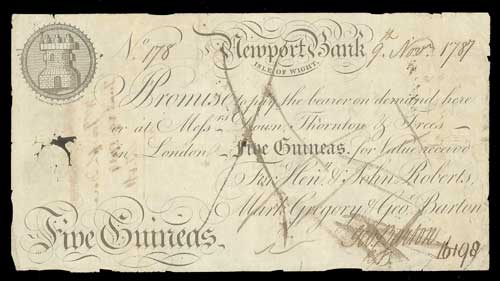 No. 178 Newport Bank 9th Novr. 1787
ISLE OF WIGHT.
I Promise to pay the bearer on demand, here
or at Messrs. Down, Thornton & Free's
in London Five Guineas, for Value received
For Heny. & John Roberts,
Mark Gregory & Geo. Barton
Five Guineas.
Geo Barton